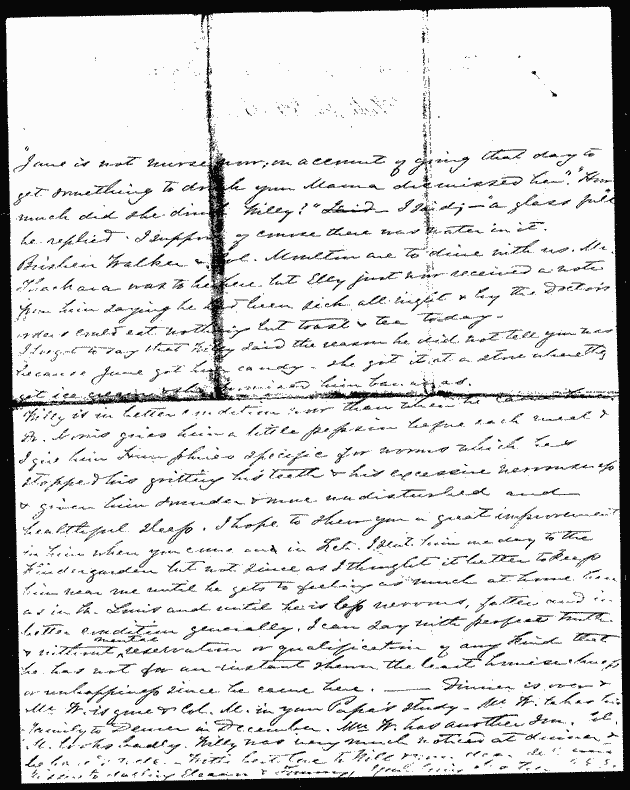 "Jane is not nurse now; on account of going that day to
get something to drink your Mama dismissed her." "How
much did she drink Willy?" Said I said; - "a glass full"
he replied - I suppose of course there was water in it.
Walker & Col. Moulton are to dine with us. Mr.
Thackara was to be here but Elly just now received a note
from him saying he had been sick all night & by the Doctors
orders could eat nothing but toast & tea today -
I forgot to say that Willy said the reason he did not tell you was
because Jane got him candy - she got it at a store where they
get ice cream & she promised him bananas.
Willy is in better condition now than when he came here.
Dr. Morris gives him a little pepsin before each meal &
I give him Humphries specific for worms which has
stopped his gritting his teeth & his excessive nervousness
& given him sounder & more undisturbed and
healthful sleep. I hope to show you a great improvement
in him when you come on in Feb. I sent him one day to the
Kindergarden but not since as I thought it better to keep
him near me until he gets to feeling as much at home here
as in St. Louis and until he is less nervous, fatter and in
better condition generally. I can say with perfect truth
& without mental reservation or qualification of any kind that
he has not for an instant shown the least homesickness
or unhappiness since he came here. - Dinner is over &
Mr. W. is gone & Col. M. in your Papa's study - Mr W. takes his
family to Denver in December. Mrs W. has another Son. Col.
M. looks badly. Willy was very much noticed at dinner &
With best love to
Kisses to darling Eleanor & Tommy,